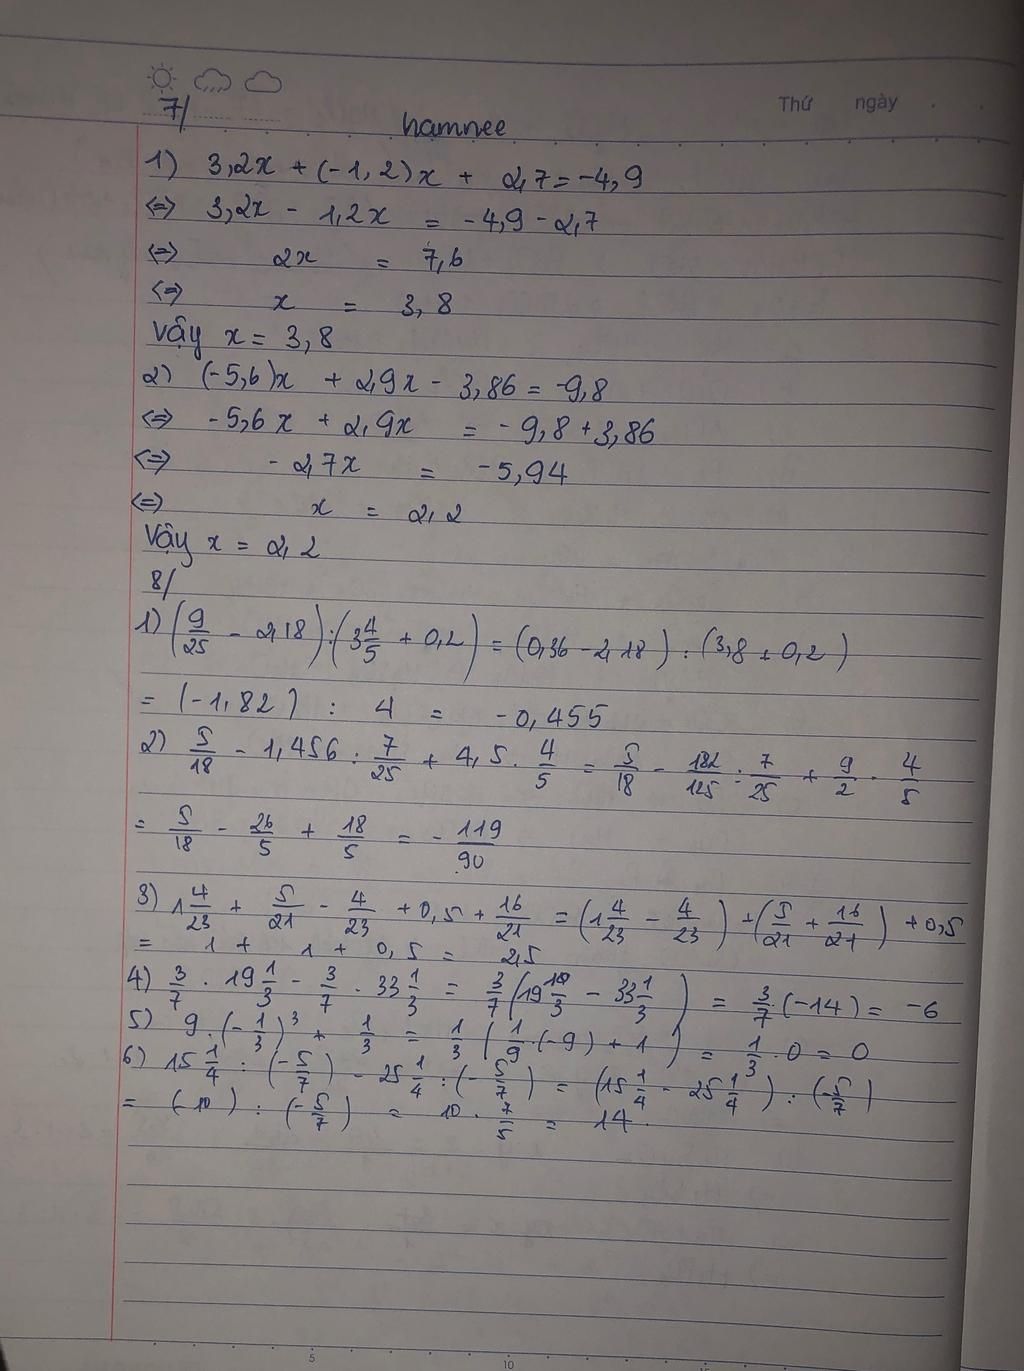 Thứ ngày
7/
hamnee
1) 3,2x + (-1,2)x + 2,7 = -4,9
<=> 3,2x - 1,2x = -4,9 - 2,7
<=> 2x = 7,6
<=> x = 3,8
Vậy x = 3,8
2) (-5,6)x + 2,9x - 3,86 = -9,8
<=> -5,6x + 2,9x = -9,8 + 3,86
<=> -2,7x = -5,94
<=> x = 2,2
Vậy x = 2,2
8/
1) (9/25 - 2,18) : (3 4/5 + 0,2) = (0,36 - 2,18) : (3,8 + 0,2)
= (-1,82) : 4 = -0,455
2) 5/18 - 1,456 : 7/25 + 4,5 . 4/5 = 5/18 - 182/125 : 7/25 + 9/2 . 4/5
= 5/18 - 26/5 + 18/5 = - 119/90
3) 1 4/23 + 5/21 - 4/23 + 0,5 + 16/21 = (1 4/23 - 4/23) + (5/21 + 16/21) + 0,5
= 1 + 1 + 0,5 = 2,5
4) 3/7 . 19 1/3 - 3/7 . 33 1/3 = 3/7 (19 1/3 - 33 1/3) = 3/7 . (-14) = -6
5) 9 . (-1/3)³ + 1/3 = 1/3 (1/9 . (-9) + 1) = 1/3 . 0 = 0
6) 15 1/4 : (-5/7) - 25 1/4 : (-5/7) = (15 1/4 - 25 1/4) : (-5/7)
= (-10) : (-5/7) = 10 . 7/5 = 14.
5 10